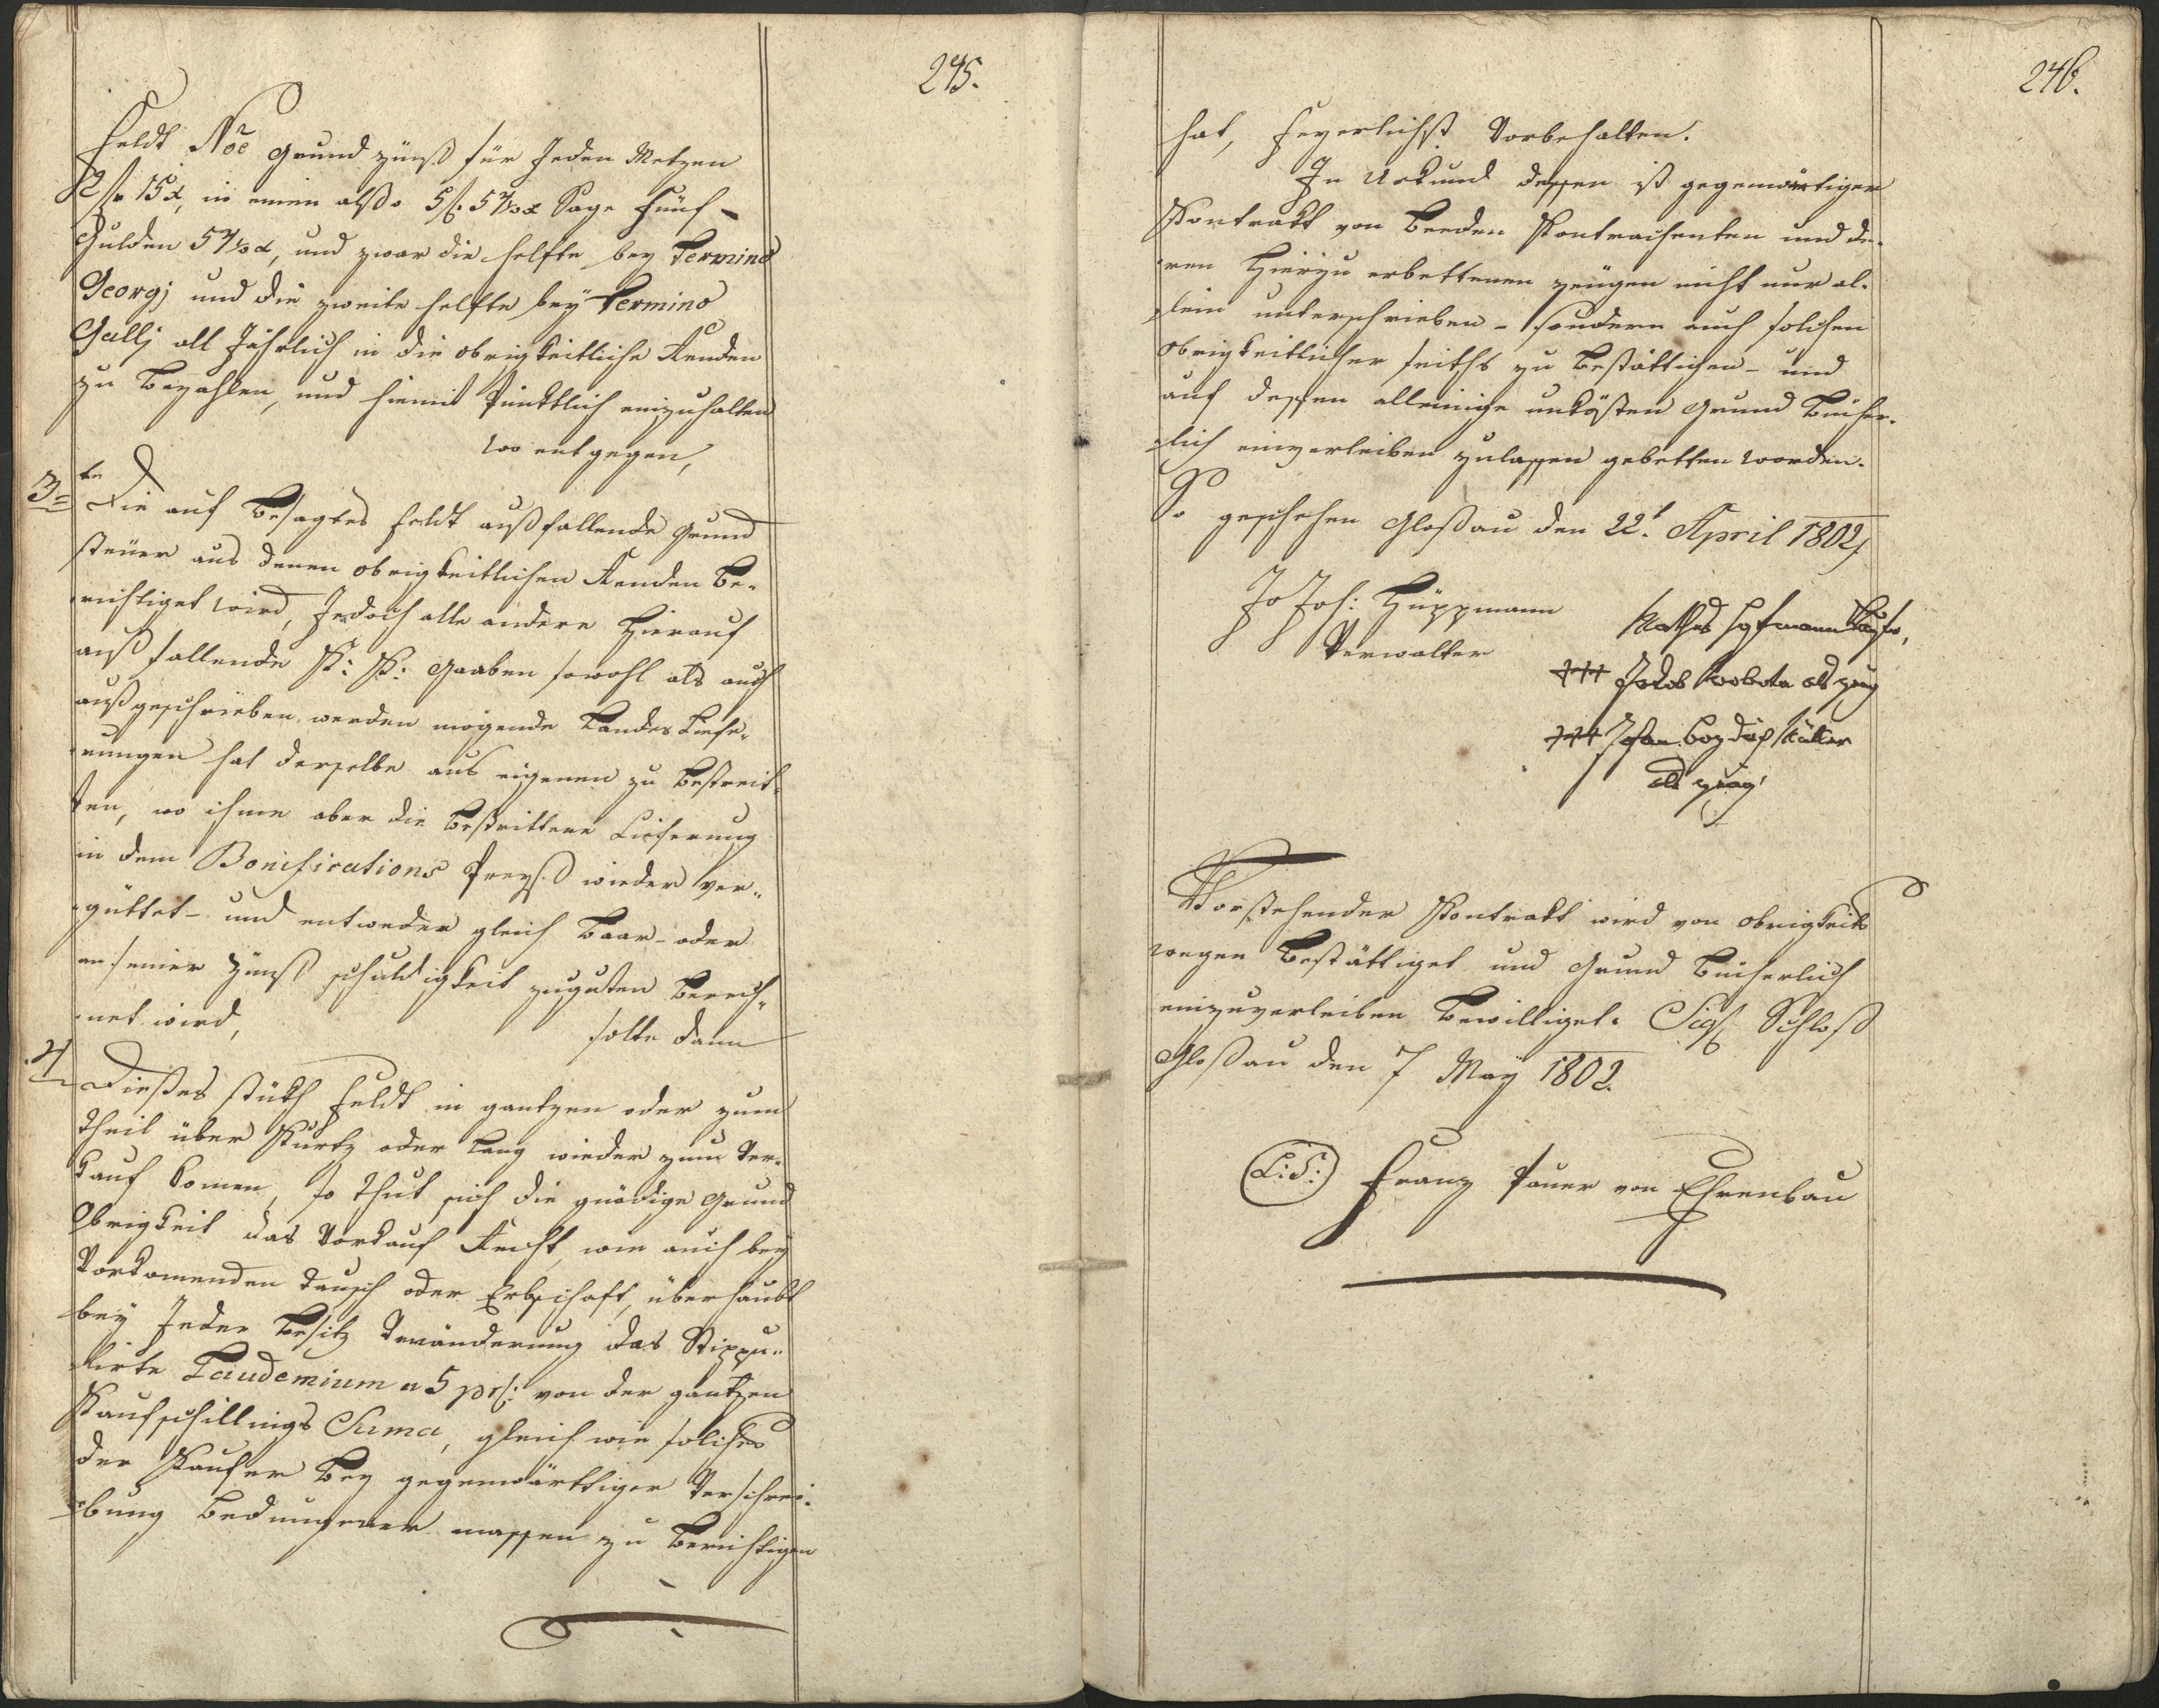 245.
Feldt Nõe Grund zünß für Jeden Metzen
2 f 15 x, in einen alßo 5 f. 5 x Sage Fünf
Gulden 5 x, und zwar die helfte bey Termino
Georgj und die zweite helfte beÿ Termino
Gallj all Jährlich in die obrigkeitliche Renden
zu Bezahlen, und hiemit Pünktlich einzuhalten
wo entgegen,
3te Die auf Besagtes Feldt außfallende Grund
steüer aus denen obrigkeitlichen Renden Be-
richtiget wird, Jedoch alle andere Hierauf
auß fallende K: K: Gaaben sowohl als auch
außgeschrieben werden mögende Landes Liefe-
rungen hat derselbe aus eigenen zu Bestreit-
ten, wo ihme aber die Bestrittene Lieferung
in dem Bonifications Preyß wieder ver-
güttet- und entweder gleich Baar- oder
an seiner Zünß schuldigkeit zuguten Berech-
net wird,
solte dann
4 Dießes stükh Feldt in gantzen oder zum
Theil über Kurtz oder Lang wieder zum Ver-
kauf komen, so thut sich die gnädige Grund
Obrigkeit das Vorkauf Recht, wie auch beÿ
Vorkomenden Tausch oder Erbschaft, überhaubt
beÿ Jeder Besitz Veränderung das Stippu-
lirte Laudemium a 5 prC: von der gantzen
Kaufschillings Suma, gleich wie solches
der Kaufer Bey gegenwärttiger Verschrei-
bung Bedungener massen zu Berichtigen
246.
hat, Feyerlichst Vorbehalten.
In Urkund dessen ist gegenwärtiger
Kontrakt von Beeden Kontrachenten und de-
ren Hierzu erbettenen zeügen nicht nur al-
lein unterschrieben- sondern auch solchen
obrigkeitlicher seiths zu Bestättichen- und
auf dessen alleinige unkösten Grund Bücher-
lich einverleiben zulassen gebetten worden.
So geschehen Gloßau den 22t. April 1802
Joh: Hüppmann
Verwalter
Mathes Hofmann Kaufer,
+++ Jakob Wobota als zeug
+++ Johan als zeug
Vorstehender Kontrakt wird von obrigkeits
wegen Bestättiget und Grund Bücherlich
einzuverleiben Bewilliget. Sigl Schloß
Gloßau den 7 Maÿ 1802.
L: S: Franz Pauer von Ehrenbau